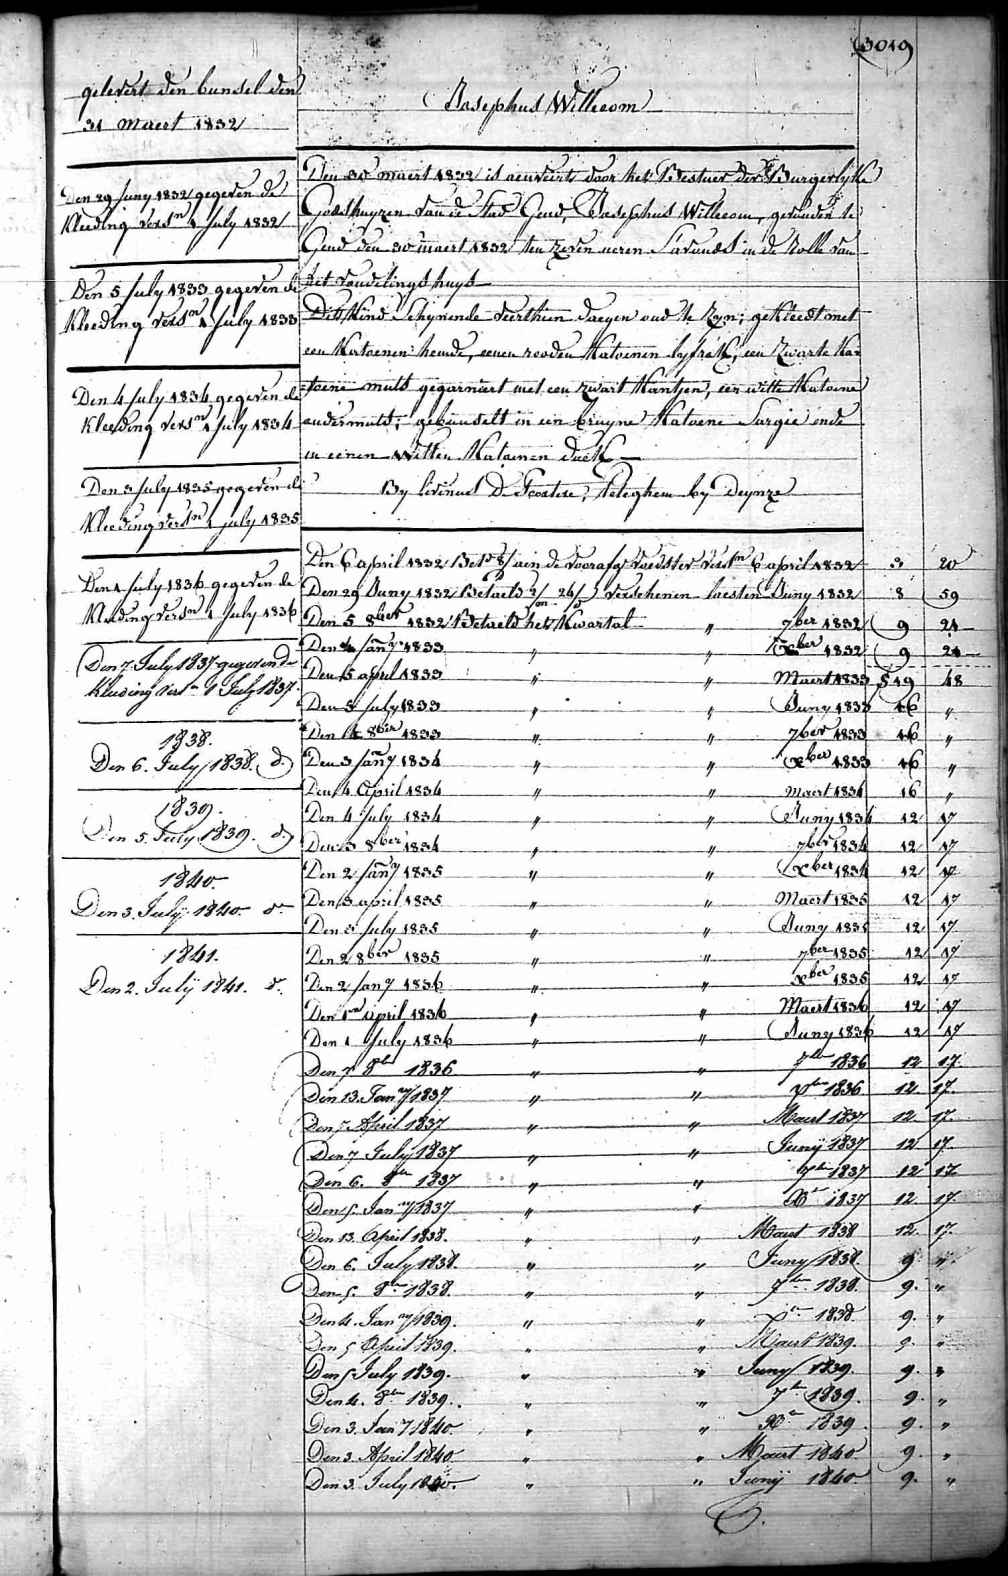 3019
gelevert den bunsel den
31 maert 1832
Den 29 Juny 1832 gegeven de
Kleeding versn 1 July 1832
Den 5 July 1833 gegeven de
Kleeding versn 1 July 1833
Den 4 July 1834 gegeven de
Kleeding versn 1 July 1834
Den 3 July 1835 gegeven de
Kleeding versn 1 July 1835
Den 1 July 1836 gegeven de
Kleeding versn 1 July 1836
Den 7 July 1837 gegeven de
Kleeding versn 1 July 1837.
1838.
Den 6. July 1838. d.
1839.
Den 5. July 1839. d.
1840.
Den 3. Julij 1840. d.
1841.
Den 2. Julij 1841. d.
Josephus Willecom
Den 30 maert 1832 is aenveert door het Bestuer der Burgerlyke
Godshuyzen van de Stad Gend, Josephus Willecom, gevonden te
Gend den 30 maert 1832 ten zeven ueren s'avonds in de Rolle van
dit vondelingshuys
Dit Kind schynende veerthien daegen oud te zyn; gekleedt met
een Katoenen hemde, eenen rooden Katoenen lyfrok, een zwarte Ka=
=toene muts gegarniert met een zwart Kantjen, een witte Katoene
ondermuts; gebundelt in een bruyne Katoene Sargie ende
in eenen witten Katoenen doek
By livinus D. Meteghem by Deynze
Den 6 april 1832 de voorafge voedster versn 6 april 1832 3 20
Den 29 Juny 1832 Betaelt verschenen laesten Juny 1832 8 59
Den 5 8ber 1832 Betaelt het Kwartal " 7ber 1832 9 21
Den 4 Jany 1833 " " Xber 1832 9 21
Den 5 april 1833 " " Maert 1833 19 48
Den 5 July 1833 " " Juny 1833 16 "
Den 4 8ber 1833 " " 7ber 1833 16 "
Den 3 Jany 1834 " " Xber 1833 16 "
Den 4 April 1834 " " maert 1834 16 "
Den 4 July 1834 " " Juny 1834 12 17
Den 3 8ber 1834 " " 7ber 1834 12 17
Den 2 Jany 1835 " " Xber 1834 12 17
Den 3 april 1835 " " Maert 1835 12 17
Den 3 July 1835 " " Juny 1835 12 17
Den 2 8ber 1835 " " 7ber 1835 12 17
Den 2 Jany 1836 " " Xber 1835 12 17
Den 1en April 1836 " " Maert 1836 12 17
Den 1 July 1836 " " Juny 1836 12 17
Den 7 8ber 1836 " " 7ber 1836 12 17.
Den 13. Jany 1837 " " Xber 1836 12. 17.
Den 7. April 1837 " " Maert 1837 12. 17.
Den 7 July 1837 " " Junij 1837 12 17.
Den 6. 8ber 1837 " " 7ber 1837 12 17.
Den 5. Jany 1837 " " Xber 1837 12. 17.
Den 13. April 1838. " " Maert 1838 12. 17.
Den 6. July 1838. " " Juny 1838. 9. "
Den 5. 8ber 1838. " " 7ber 1838. 9. "
Den 4. Jany 1839. " " Xber 1838. 9. "
Den 5 April 1839. " " Maert 1839. 9. "
Den 5 July 1839. " " Juny 1839. 9. "
Den 4. 8ber 1839. " " 7ber 1839. 9. "
Den 3. Jany 1840. " " Xber 1839 9. "
Den 3. April 1840. " " Maert 1840 9. "
Den 3. July 1840. " " Junij 1840 9. "